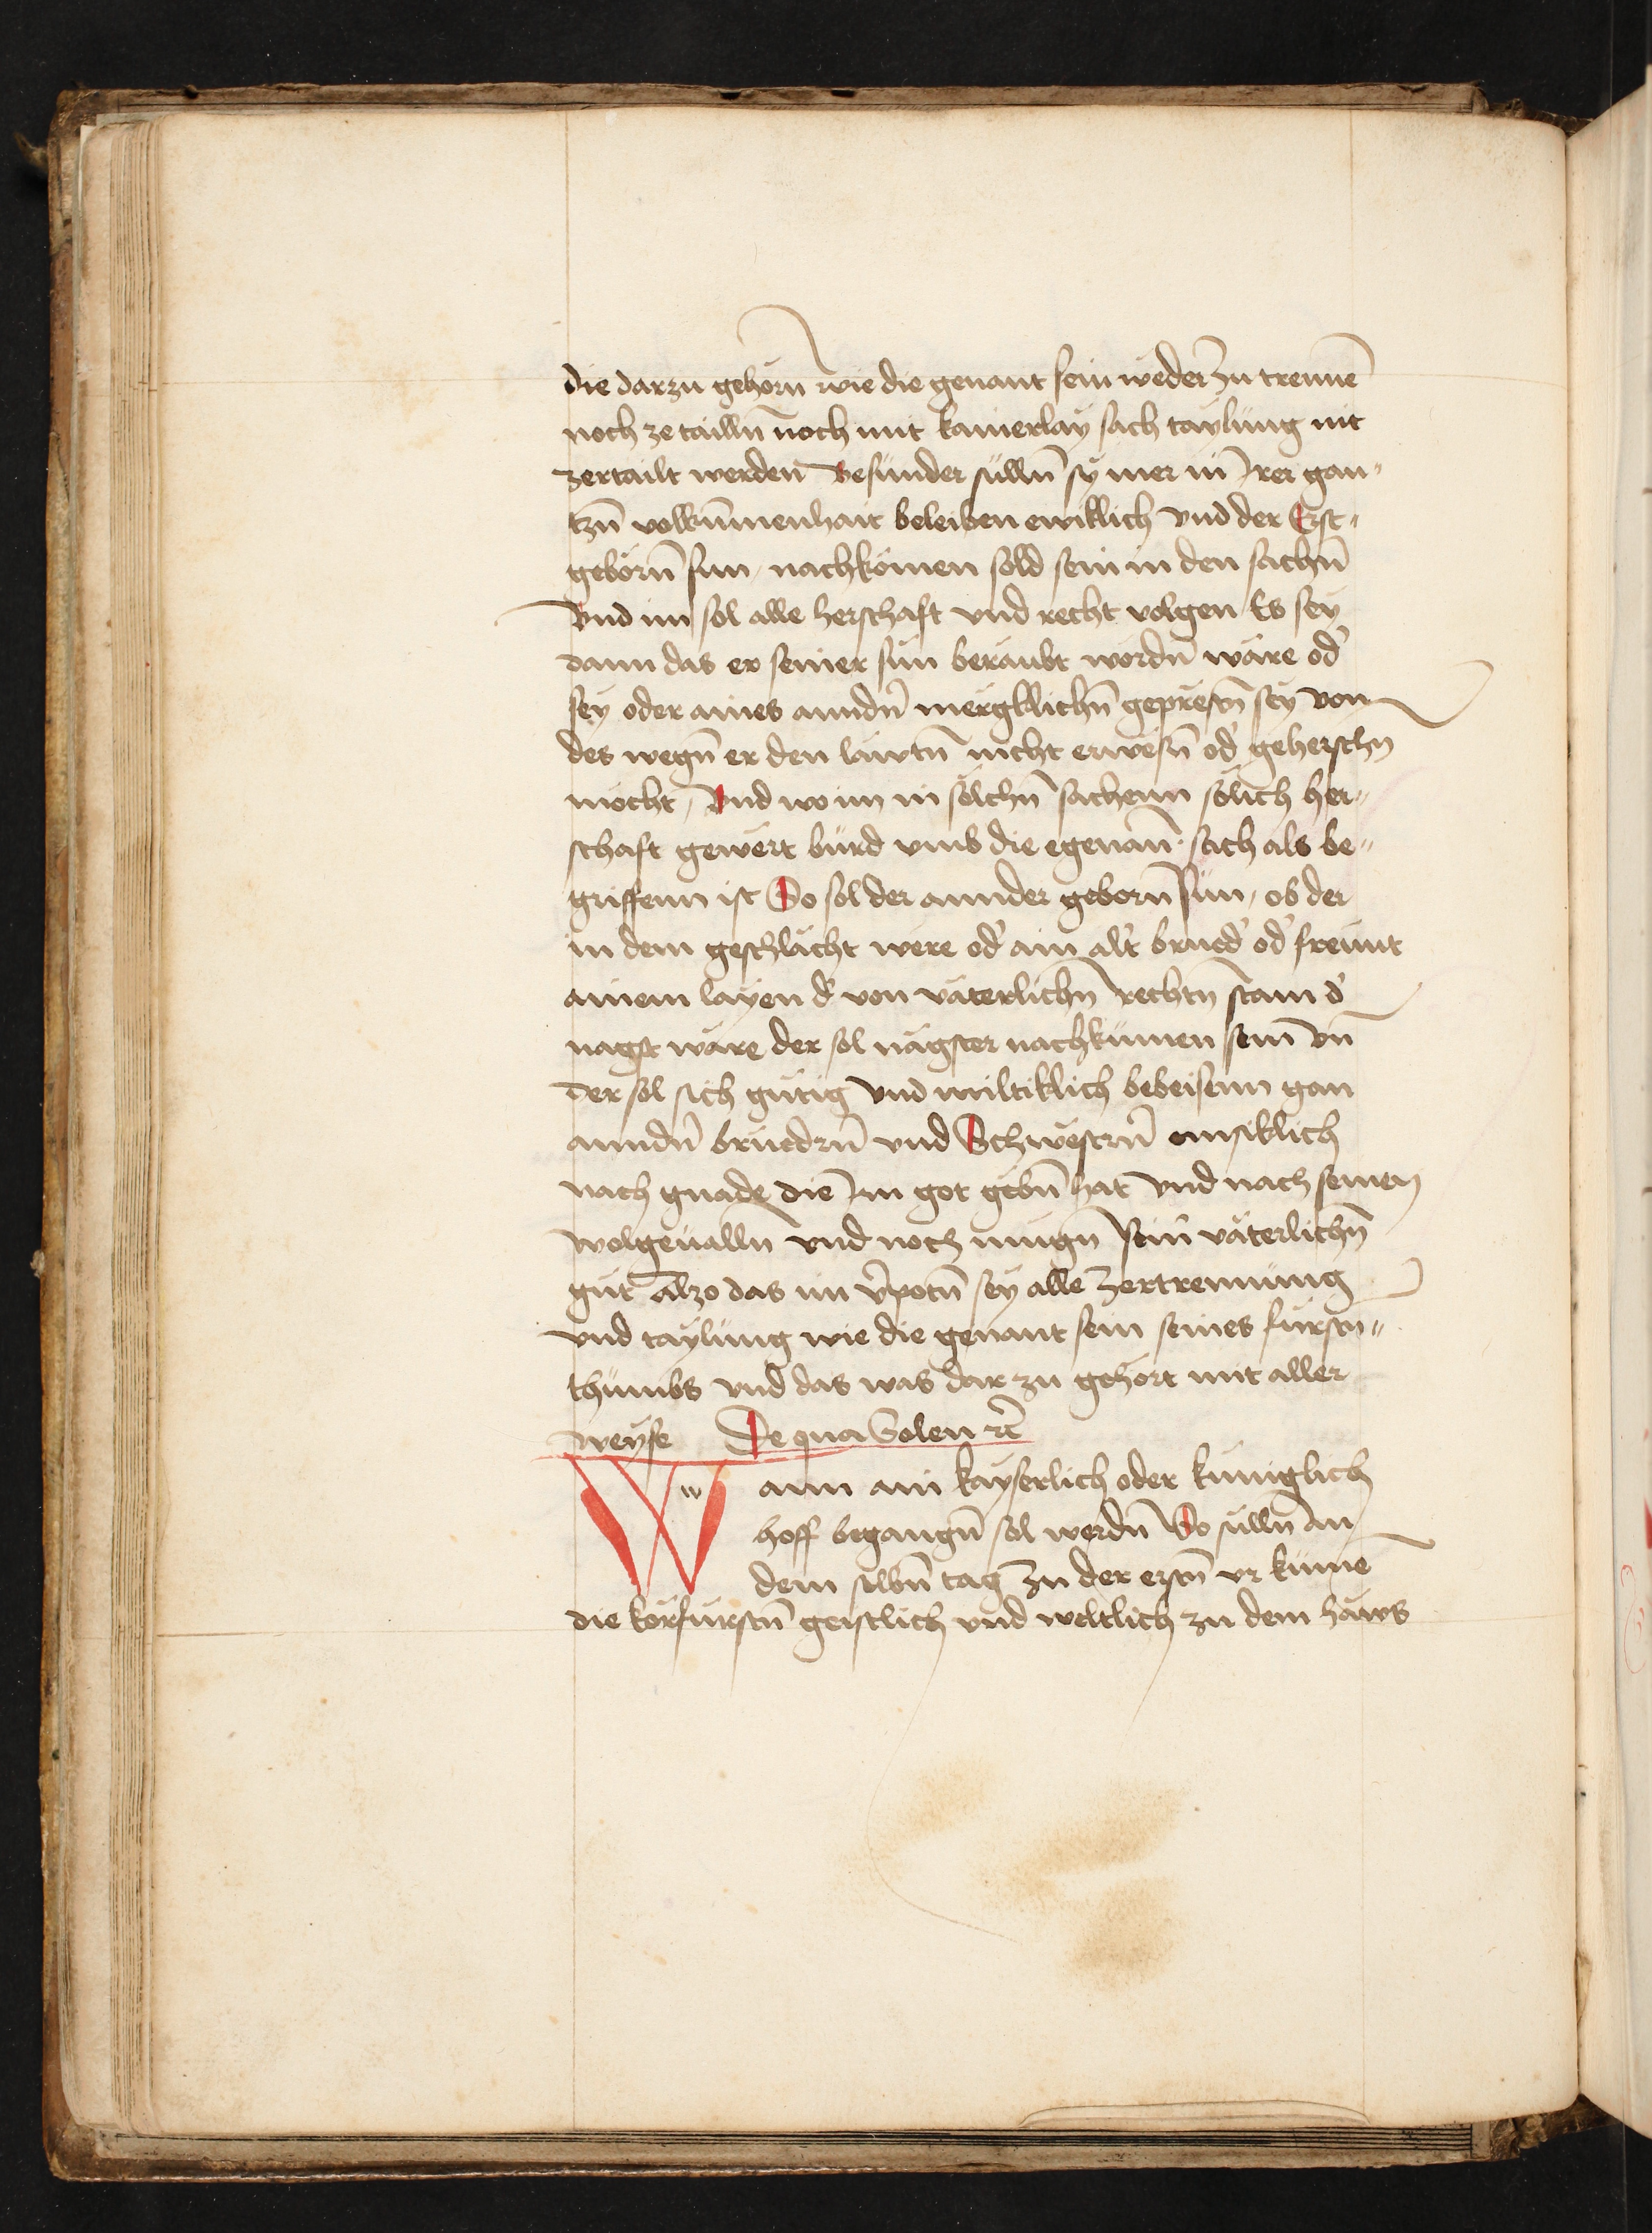 die darzu gehörn wie die genant sein weder zu trennē
noch ze tailln̄ noch mit kainerlay sach taylung nit
zertailt werden Besunder sülln̄ sy mer in Jrer gan„
tzn̄ volkūmenhait beleiben ewiklich vnd der Erst„
geborn̄ sun nachkömen sold sein in den sachn̄
Vnd im sol alle herschaft vnd recht volgen Es sey
dann das er seiner sün beraubt wordn̄ wäre od'
sey oder aines anndn̄ mergklichn̄ geprestn̄ sey von
des wegn̄ er den läwtn̄ nicht erwesn̄ od' geherschn
möcht, Vnd wo im in sölchn̄ sachenn sölich her„
schaft gewert bürd vmb die egenan̄ sach als be„
griffenn ist So sol der annder geborn sün, ob der
in dem geschlächt were od' ain alt' brued' od' freunt
ainem layen d' von väterlichn̄ rechtn̄ stam d'
nagst wäre der sol nägster nachkumen sein vn̄
der sol sich gütig vnd miltiklich bebeisenn gan
anndn̄ bruedrn̄ vnd Schwestrn̄ emsiklich
nach gnade die Jm got gebn̄ hat vnd nach seinen
wolgeualln̄ vnd noch mügn̄ sein väterlichn̄
güt Alzo das im v'potn̄ sey alle zertrennung
vnd taylung wie die genant sein seines fürstn„
thumbs vnd das was dar zu gehört mit aller
weyse De qua Solen rc̄
Wann ain kayserlich oder küniglich
hoff begangn̄ sol werdn̄ So sülln̄ an
dem selbn̄ tag zu der erstn̄ vr kumē
die körfürstn̄ geistlich vnd weltlich zu dem haws